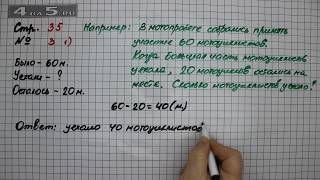 4 на 5.ru
Стр. 35
№ 3 1)
Например: В мотопробеге собрались принять
участие 60 мотоциклистов.
Когда большая часть мотоциклистов
уехала, 20 мотоциклистов остались на
месте. Сколько мотоциклистов уехало?
Было - 60 м.
Уехали - ?
Осталось - 20 м.
60-20=40(м)
Ответ: уехало 40 мотоциклистов